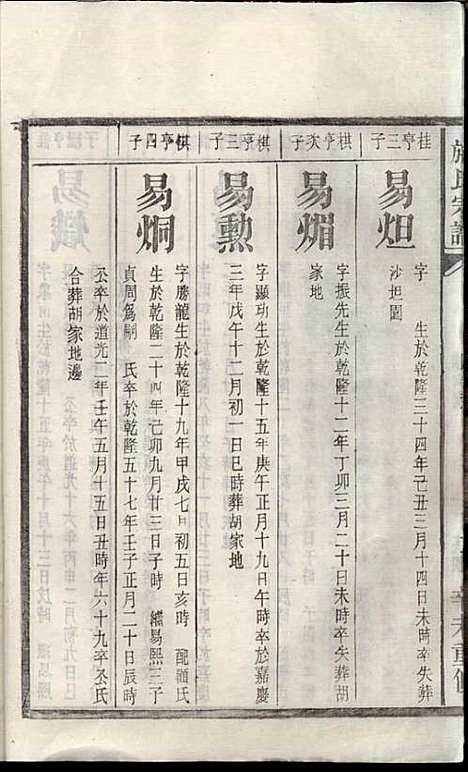 桂亨三子
易炟
字　　生於乾隆三十四年己丑三月十四日未時卒失葬
沙坦園
棋亨次子
易焻
字振先生於乾隆十二年丁卯三月二十日未時卒失葬胡
家地
棋亨三子
易勲
字顯功生於乾隆十五年庚午正月十九日午時卒於嘉慶
三年戊午十二月初一日巳時葬胡家地
棋亨四子
易炯
字勝龍生於乾隆十九年甲戌七月初五日亥時　配顏氏
生於乾隆二十四年己卯九月廿三日子時　繼易熙三子
貞周爲嗣　氏卒於乾隆五十七年壬子正月二十日辰時
公卒於道光二年壬午五月十五日丑時年六十九卒公氏
合葬胡家地邊
氏宗譜
辛未重修